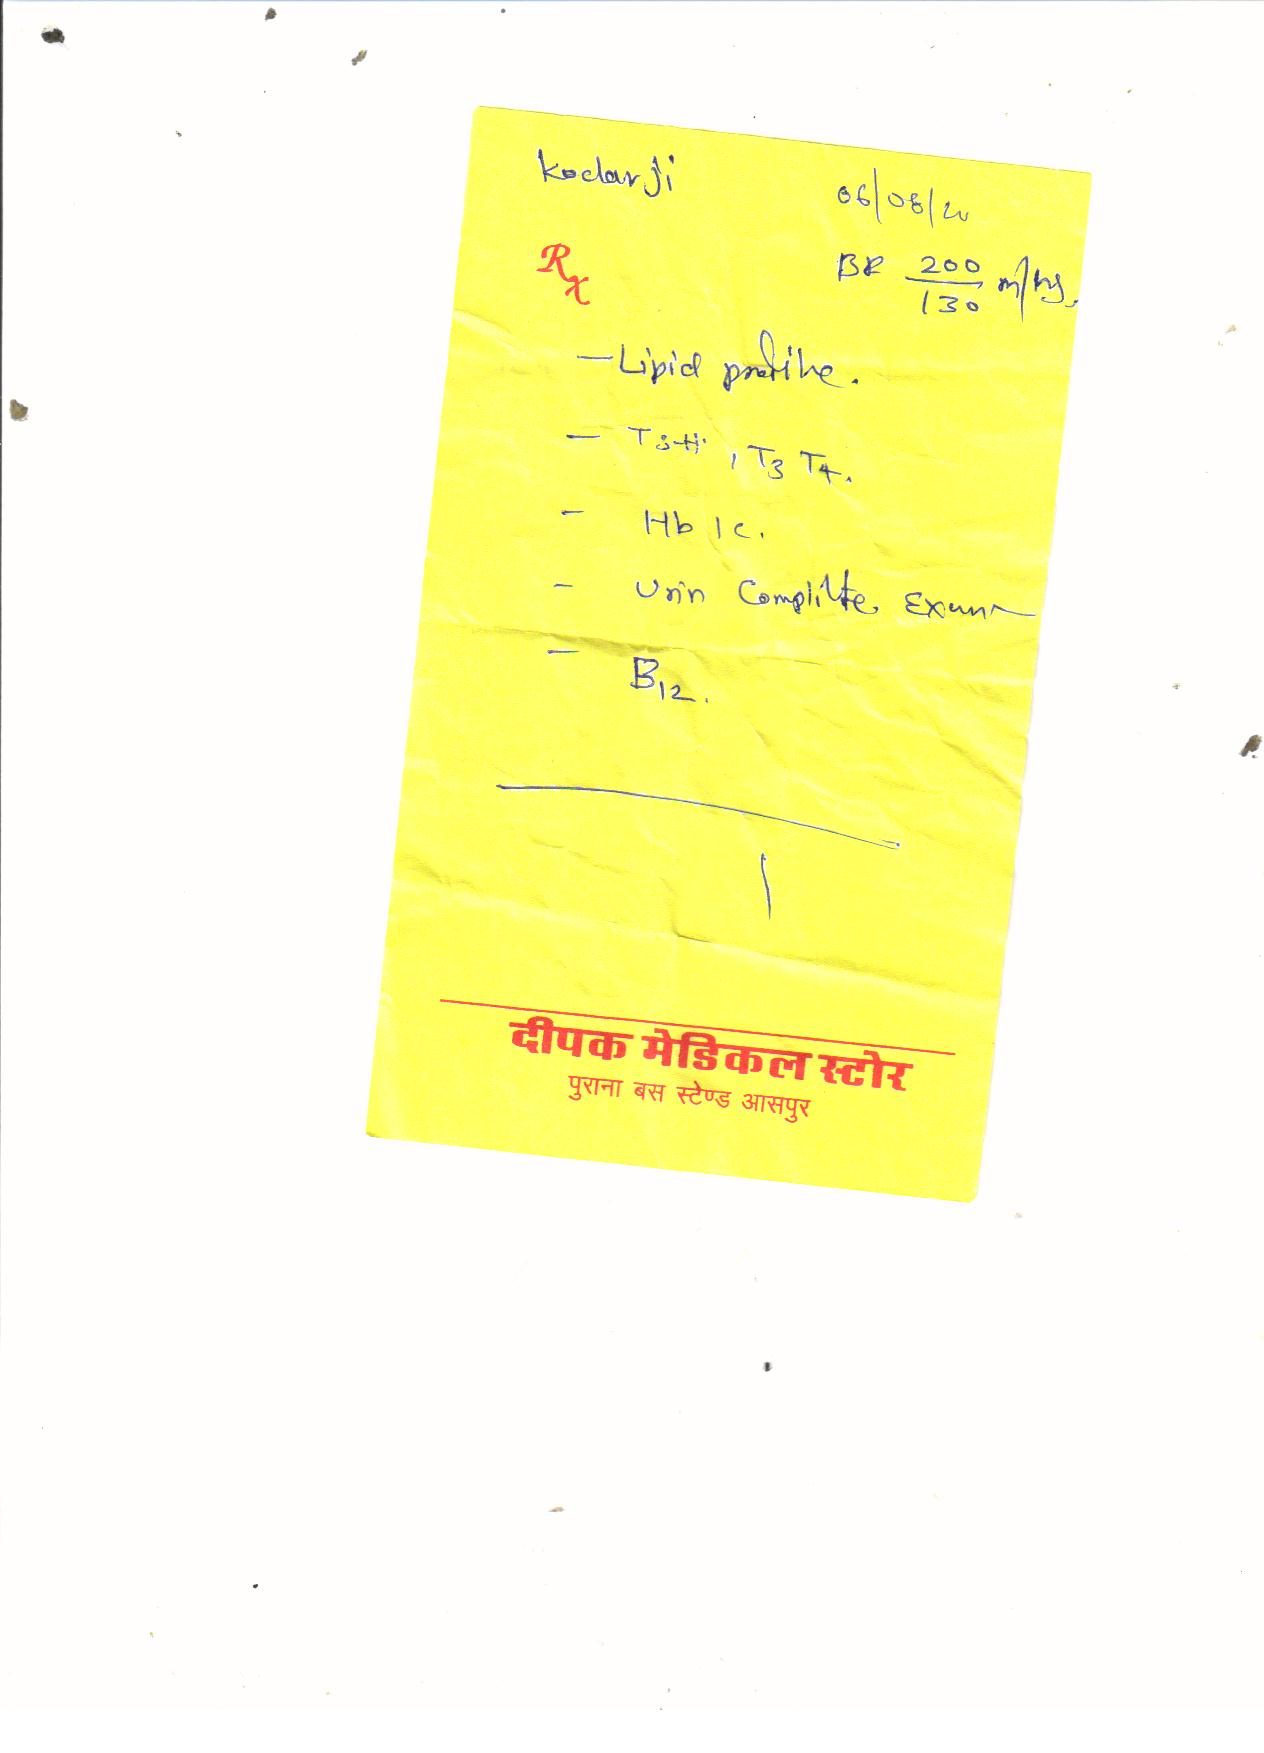 Kodarji
06/08/20
Rx
BP 200/130 m/hg.
- Lipid profile.
- TSH, T3 T4.
- Hb 1c.
- Urin Complite Exam
- B12.
दीपक मेडिकल स्टोर
पुराना बस स्टेण्ड आसपुर